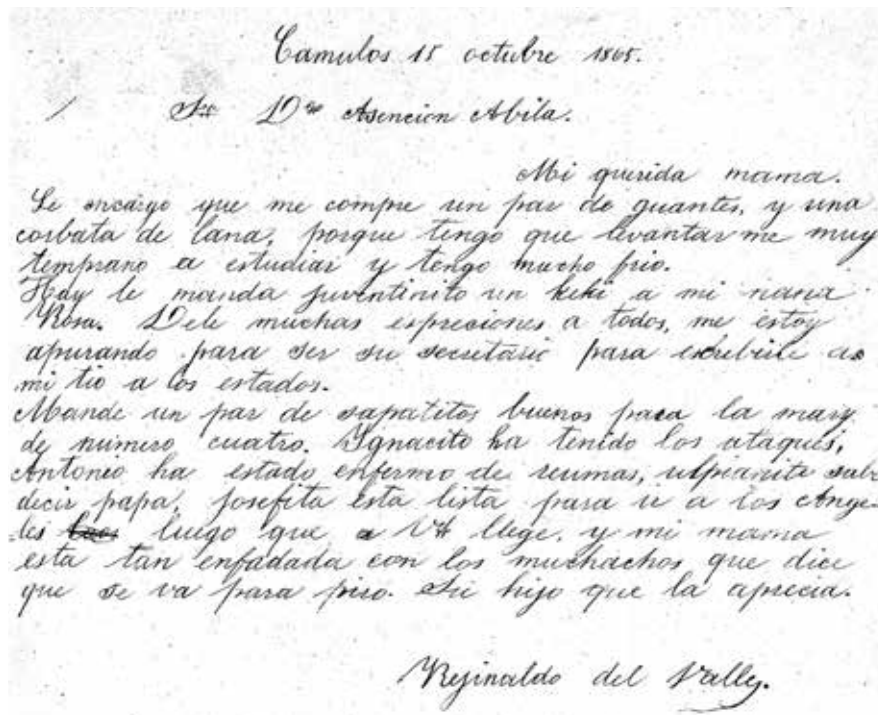 Camulos 15 octubre 1865.
Sra Da Asencion Abila.
Mi querida mama.
Le encargo que me compre un par de guantes, y una
corbata de lana, porque tengo que levantar me muy
temprano a estudiar y tengo mucho frio.
Hoy le manda juventinito un keki a mi nana
Rosa. Dele muchas espreciones a todos, me estoy
apurando para ser su secretario para escrebirle a
mi tio a los estados.
Mande un par de sapatitos buenos para la mary
de numero cuatro. Ignacito ha tenido los ataques,
Antonio ha estado enfermo de reumas, ulpianito sabe
decir papa, Josefita esta lista para ir a los Ange-
les luego que Vd llege, y mi mama
esta tan enfadada con los muchachos que dice
que se va para piro. Su hijo que la aprecia.
Rejinaldo del Valle.